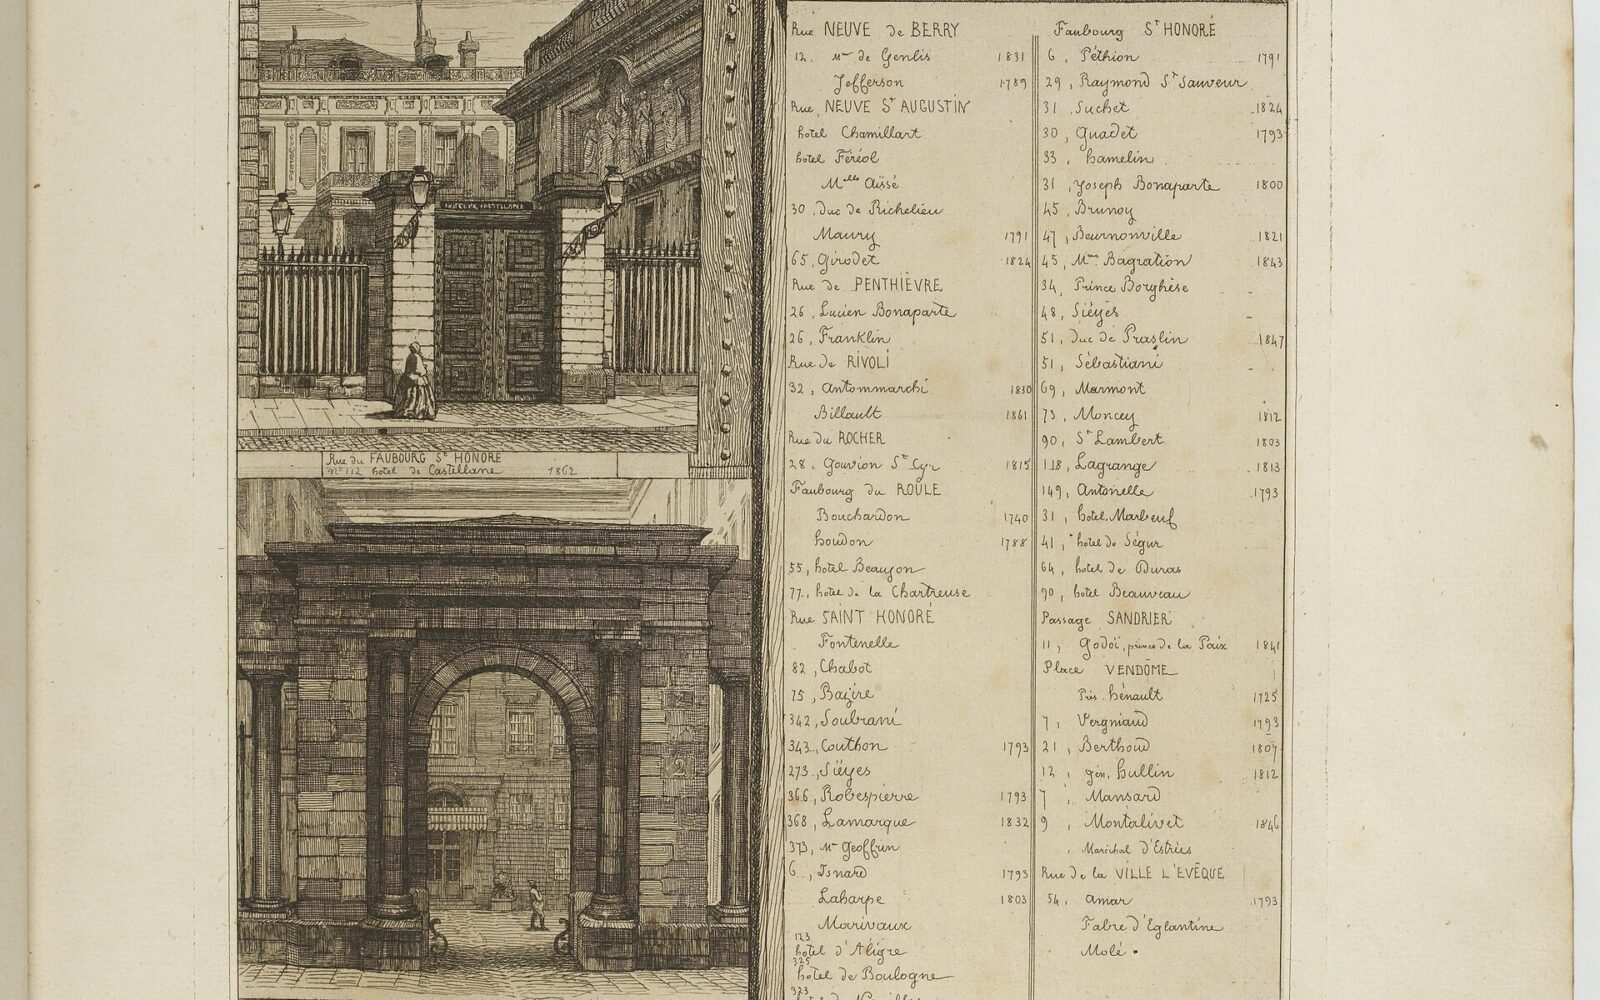 HOTEL DE CASTELLANE
Rue du FAUBOURG St HONORÉ
No 112 hotel de Castellane 1862
2
Rue NEUVE de BERRY
12. Mme de Genlis 1831
Jefferson 1789
Rue NEUVE St AUGUSTIN
hotel Chamillart
hotel Féréol
Melle Aïssé
30, Duc de Richelieu
Maury 1791
65, Girodet 1824
Rue de PENTHIÈVRE
26, Lucien Bonaparte
26, Franklin
Rue de RIVOLI
32, Antommarchi 1830
Billault 1861
Rue du ROCHER
28, Gouvion St Cyr 1815
Faubourg du ROULE
Bouchardon 1740
houdon 1788
55, hotel Beaujon
77, hotel de la Chartreuse
Rue SAINT HONORÉ
Fontenelle
82, Chabot
75, Bazire
342, Soubrani
343, Couthon 1793
273, Siéyes
366, Robespierre 1793
368, Lamarque 1832
373, Me Geoffrin
6, Isnard 1793
Laharpe 1803
Marivaux
123
hotel d'Aligre
325
hotel de Boulogne
323
Faubourg St HONORÉ
6, Péthion 1791
29, Raymond St Sauveur
31, Suchet 1824
30, Guadet 1793
33, hamelin
31, Joseph Bonaparte 1800
45, Brunoy
47, Beurnonville 1821
45, Mme Bagration 1843
34, Prince Borghèse
48, Siéyes
51, duc de Praslin 1847
51, Sébastiani
69, Marmont
73, Moncey 1812
90, St Lambert 1803
118, Lagrange 1813
149, Antonelle 1793
31, hotel Marbeuf
41, hotel de Ségur
64, hotel de Duras
90, hotel Beauveau
Passage SANDRIER
11, Godoï, prince de la Paix 1841
Place VENDÔME
Prés. hénault 1725
7, Vergniaud 1793
21, Berthoud 1807
12, gén. hullin 1812
7, Mansard
9, Montalivet 1846
Maréchal d'Estrées
Rue de la VILLE L'EVÊQUE
54, amar 1793
Fabre d'Eglantine
Molé.